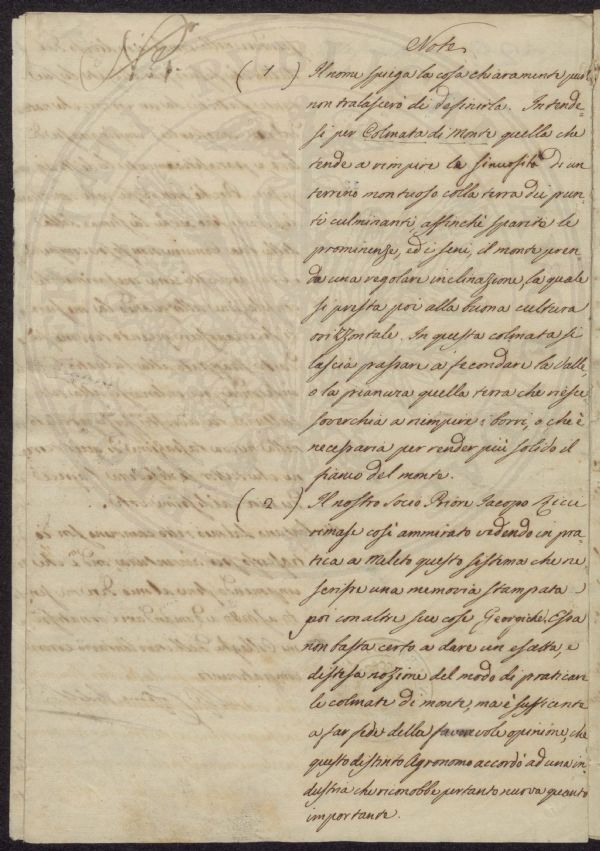 Note
(1) Il nome spiega la cosa chiaramente pure
non tralascerò di definirla. Intende-
si per Colmata di Monte quella che
tende a riempire le sinuosità di un
terreno montuoso colla terra dei pun-
ti culminanti affinchè sparite le
prominenze, ed i seni, il monte pren-
da una regolare inclinazione, la quale
si presta poi alla buona cultura
orizzontale. In questa colmata si
lascia passare a fecondare la valle,
o la pianura quella terra che riesce
soverchia a riempire i borri, o che è
necessaria per render più solido il
fianco del monte.
(2) Il nostro Socio Priore Jacopo Ricci
rimase così ammirato vedendo in pra-
tica a Meleto questo sistema che ne
scrisse una memoria stampata
poi con altre sue cose Georgiche. Essa
non basta certo a dare un esatta, e
distesa nozione del modo di praticare
le colmate di monte, ma è sufficente
a far fede della favorevole opinione, che
questo distinto Agronomo accordò ad una in-
dustria che riconobbe pertanto nuova quanto
importante.